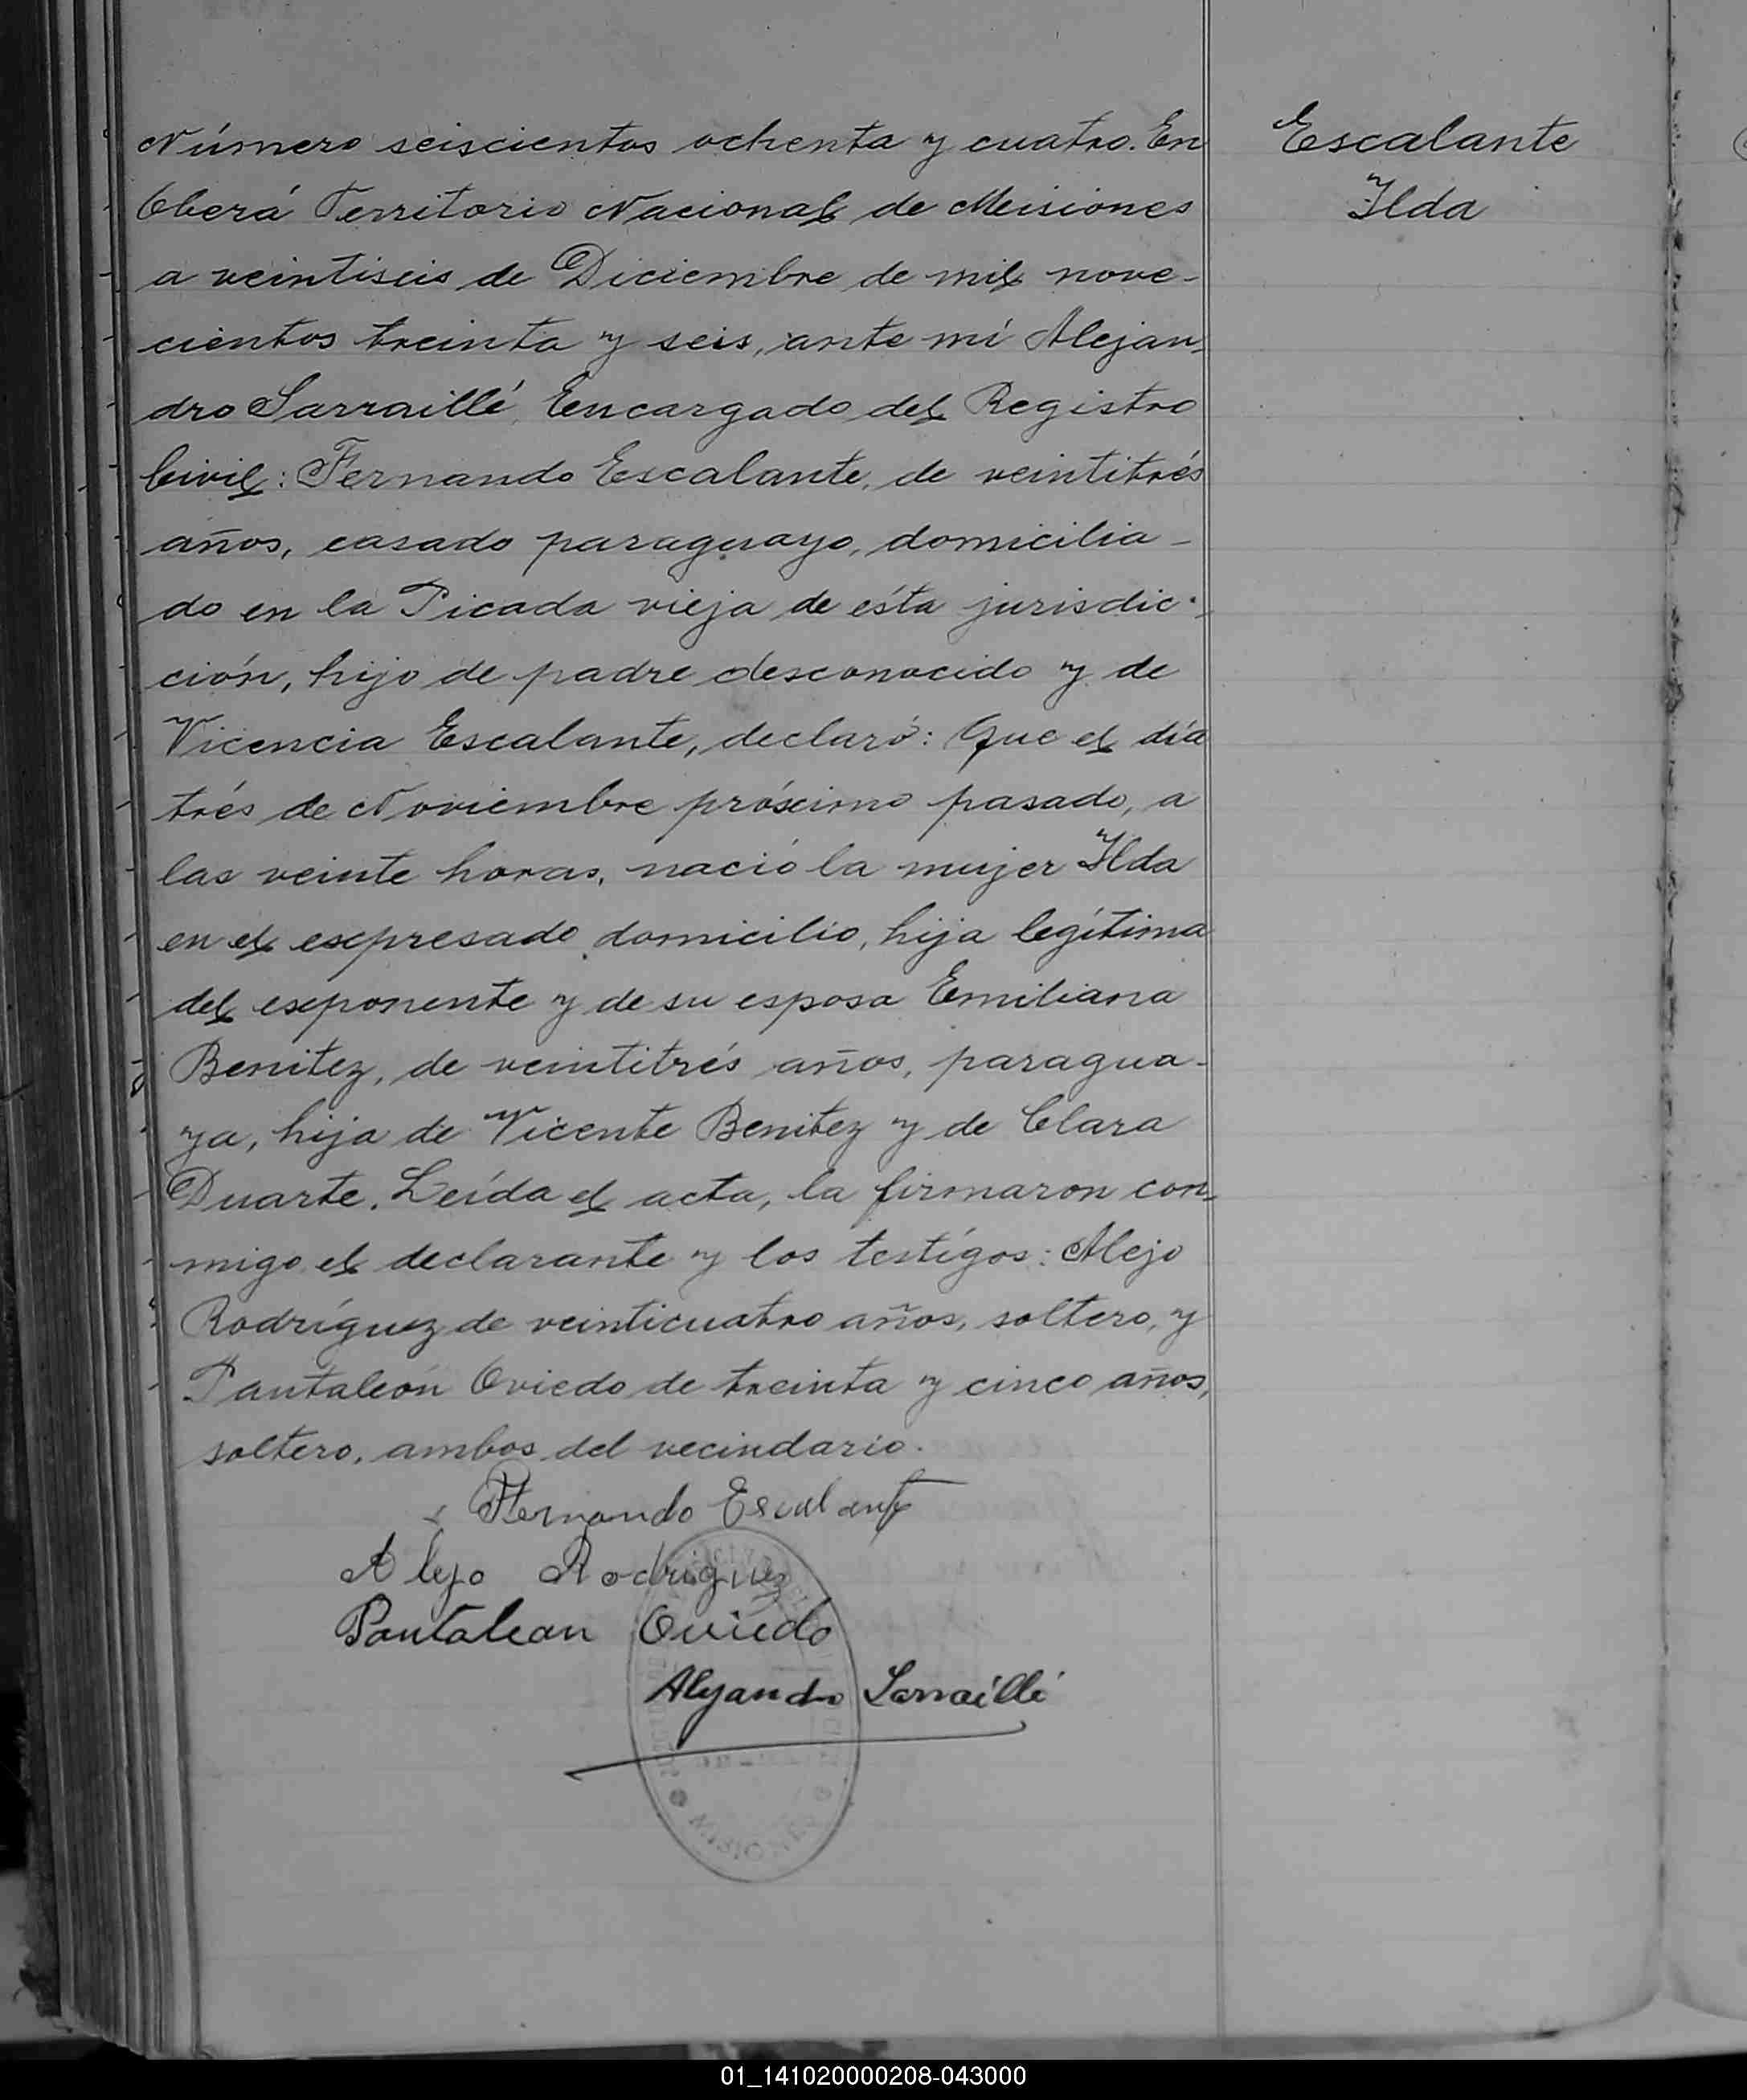 Número seiscientos ochenta y cuatro. En
Oberá Territorio Nacional de Meisiones
a veintiseis de Diciembre de mil nove-
cientos treinta y seis, ante mí Alejan-
dro Sarraillé, Encargado del Registro
Civil: Fernando Escalante, de veintitrés
años, casado paraguayo, domicilia-
do en la Picada vieja de ésta jurisdic-
ción, hijo de padre desconocido y de
Vicencia Escalante, declaró: Que el día
trés de Noviembre próximo pasado, a
las veinte horas, nació la mujer Ilda
en el expresado domicilio, hija legítima
del exponente y de su esposa Emiliana
Benitez, de veintitrés años, paragua-
ya, hija de Vicente Benitez y de Clara
Duarte. Leída el acta, la firmaron con-
migo el declarante y los testígos: Alejo
Rodríguez de veinticuatro años, soltero, y
Pantaleón Oviedo de treinta y cinco años,
soltero, ambos del vecindario.
Escalante
Ilda
Fernando Escalante
Alejo Rodriguez
Pantalean Oviedo
Alejandro Sarraillé
MISIONES
01_141020000208-043000